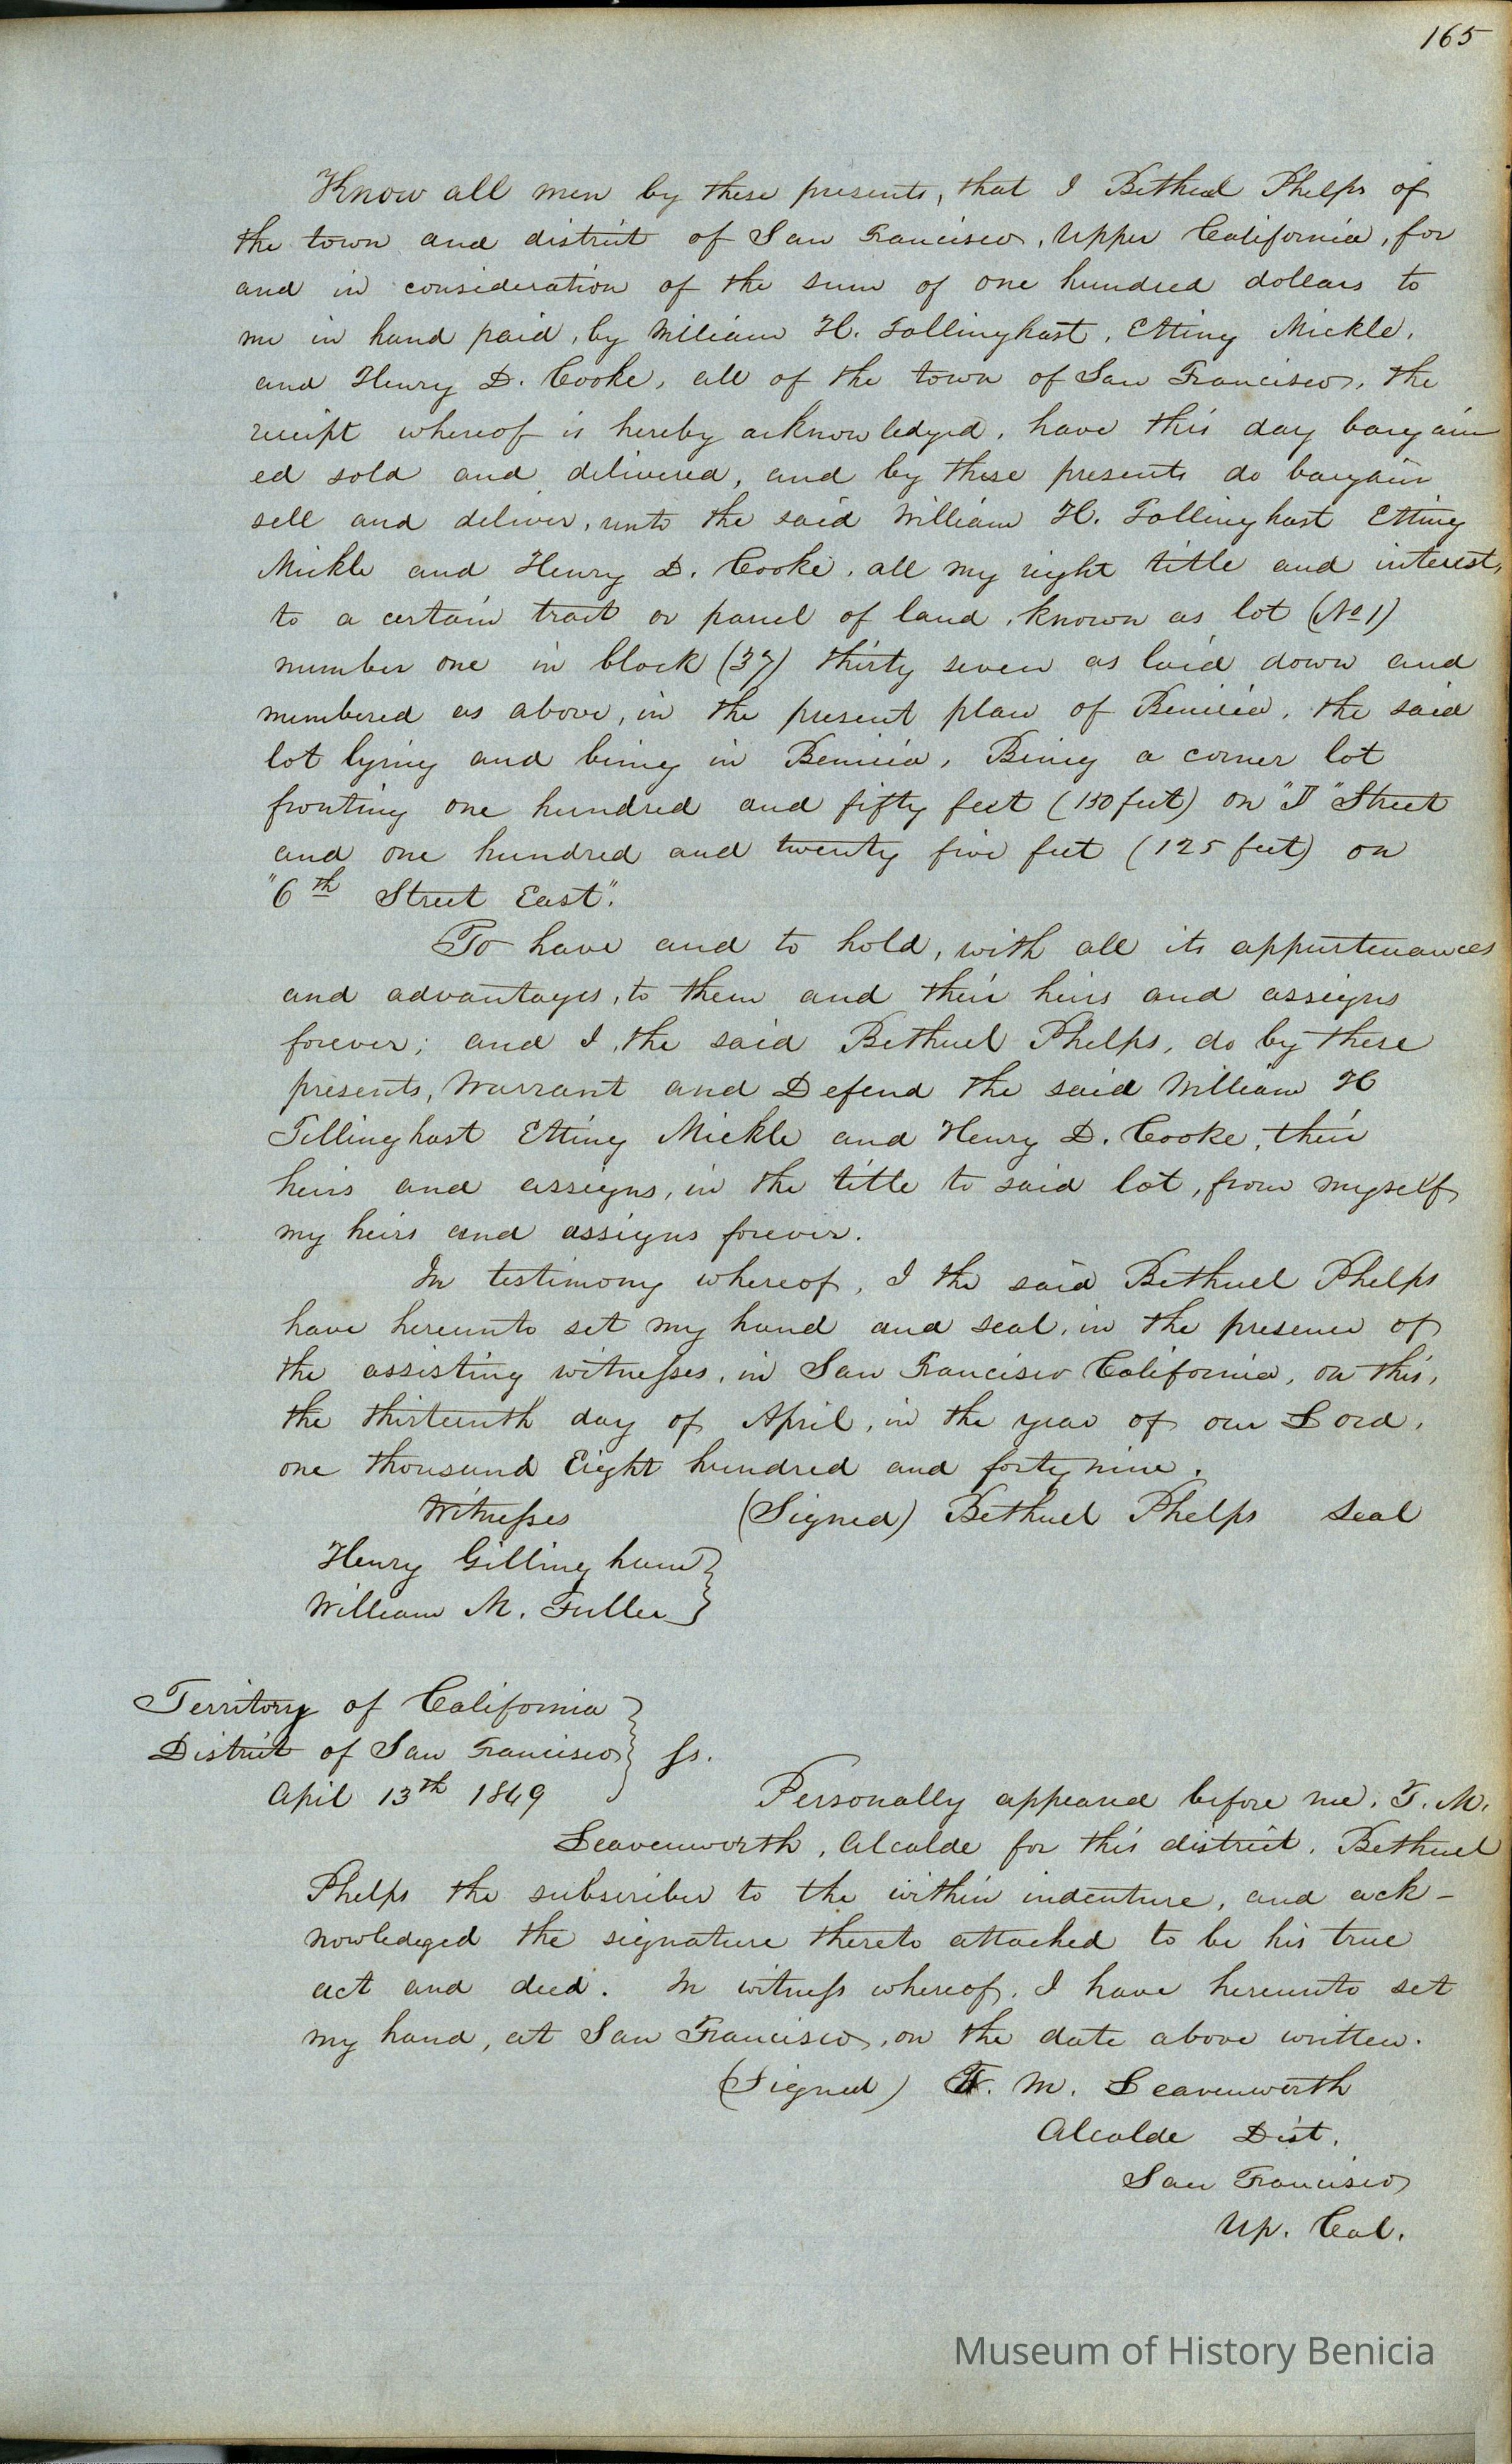 165
Know all men by these presents, that I Bethuel Phelps of
the town and district of San Francisco, Upper California, for
and in consideration of the sum of one hundred dollars to
me in hand paid, by William H. Tollinghast, Etting Mickle,
and Henry D. Cooke, all of the town of San Francisco, the
receipt whereof is hereby acknowledged, have this day bargain
ed sold and delivered, and by these presents do bargain
sell and deliver, unto the said William H. Tollinghast Etting
Mickle and Henry D. Cooke, all my right title and interest,
to a certain tract or parcel of land, known as lot (No 1)
number one in block (37) thirty seven as laid down and
numbered as above, in the present plan of Benicia, the said
lot lying and being in Benicia, Being a corner lot
fronting one hundred and fifty feet (150 feet) on "J" Street
and one hundred and twenty five feet (125 feet) on
"6th Street East".
To have and to hold, with all its appurtenances
and advantages, to them and their heirs and assigns
forever; and I, the said Bethuel Phelps, do by these
presents, Warrant and Defend the said William H
Tillinghast Etting Mickle and Henry D. Cooke, their
heirs and assigns, in the title to said lot, from myself
my heirs and assigns forever.
In testimony whereof, I the said Bethuel Phelps
have hereunto set my hand and seal, in the presence of
the assisting witnesses, in San Francisco California, on this,
the thirteenth day of April, in the year of our Lord,
one thousand Eight hundred and forty nine.
Witnesses (Signed) Bethuel Phelps Seal
Henry Gillingham
William M. Fuller
Territory of California
District of San Francisco } ss.
April 13th 1849 Personally appeared before me, T. M.
Leavenworth, Alcalde for this district, Bethuel
Phelps the subscriber to the within indenture, and ack-
nowledged the signature thereto attached to be his true
act and deed. In witness whereof, I have hereunto set
my hand, at San Francisco, on the date above written.
(Signed) T. M. Leavenworth
Alcalde Dist.
San Francisco
Up. Cal.
Museum of History Benicia